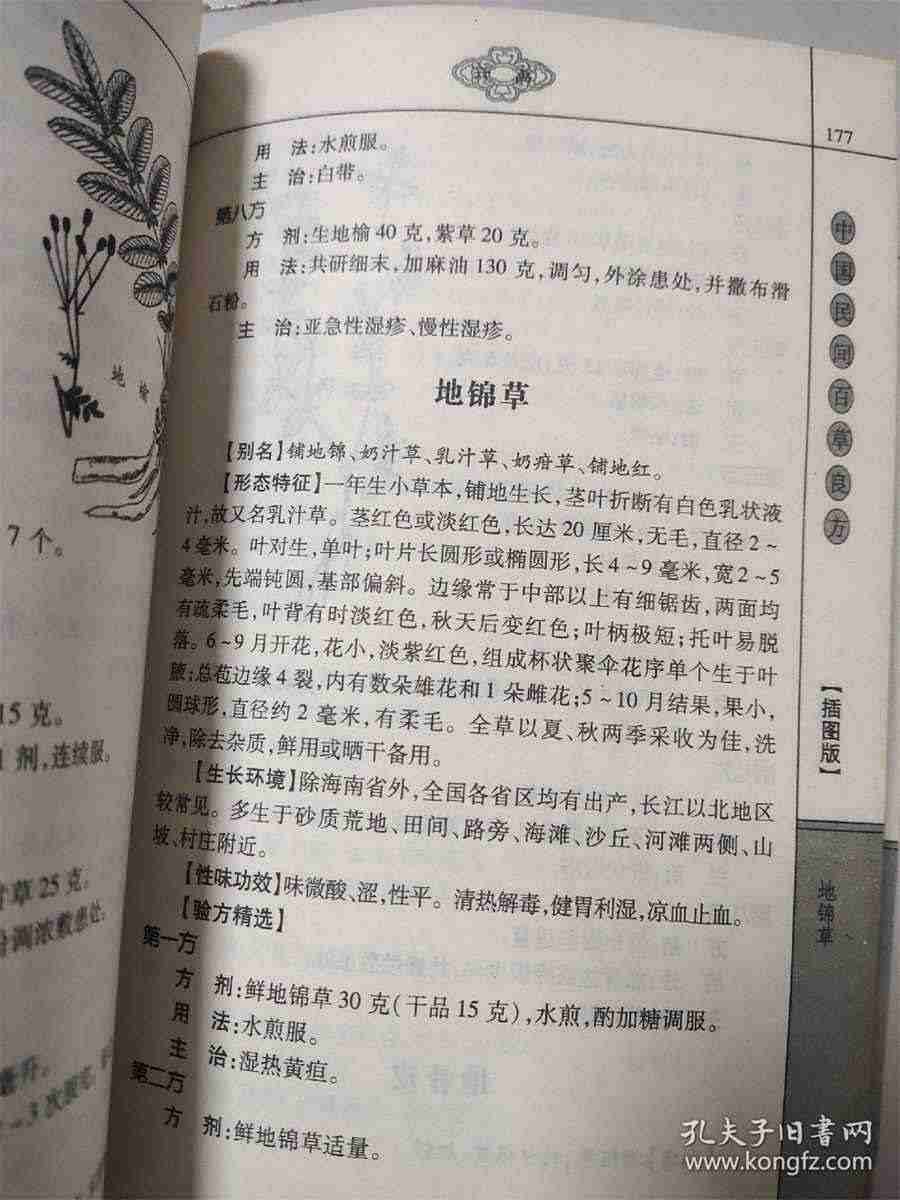 177
用　法:水煎服。
主　治:白带。
第八方
方　剂:生地榆40克,紫草20克。
用　法:共研细末,加麻油130克,调匀,外涂患处,并撒布滑
石粉。
主　治:亚急性湿疹、慢性湿疹。
地锦草
【别名】铺地锦、奶汁草、乳汁草、奶疳草、铺地红。
【形态特征】一年生小草本,铺地生长,茎叶折断有白色乳状液
汁,故又名乳汁草。茎红色或淡红色,长达20厘米,无毛,直径2~
4毫米。叶对生,单叶;叶片长圆形或椭圆形,长4~9毫米,宽2~5
毫米,先端钝圆,基部偏斜。边缘常于中部以上有细锯齿,两面均
有疏柔毛,叶背有时淡红色,秋天后变红色;叶柄极短;托叶易脱
落。6~9月开花,花小,淡紫红色,组成杯状聚伞花序单个生于叶
腋;总苞边缘4裂,内有数朵雄花和1朵雌花;5~10月结果,果小,
圆球形,直径约2毫米,有柔毛。全草以夏、秋两季采收为佳,洗
净,除去杂质,鲜用或晒干备用。
【生长环境】除海南省外,全国各省区均有出产,长江以北地区
较常见。多生于砂质荒地、田间、路旁、海滩、沙丘、河滩两侧、山
坡、村庄附近。
【性味功效】味微酸、涩,性平。清热解毒,健胃利湿,凉血止血。
【验方精选】
第一方
方　剂:鲜地锦草30克(干品15克),水煎,酌加糖调服。
用　法:水煎服。
主　治:湿热黄疸。
第二方
方　剂:鲜地锦草适量。
中国民间百草良方
【插图版】
地锦草
地榆
7个。
15克。
1剂,连续服。
草25克。
调浓敷患处
3次服
孔夫子旧书网
www.kongfz.com